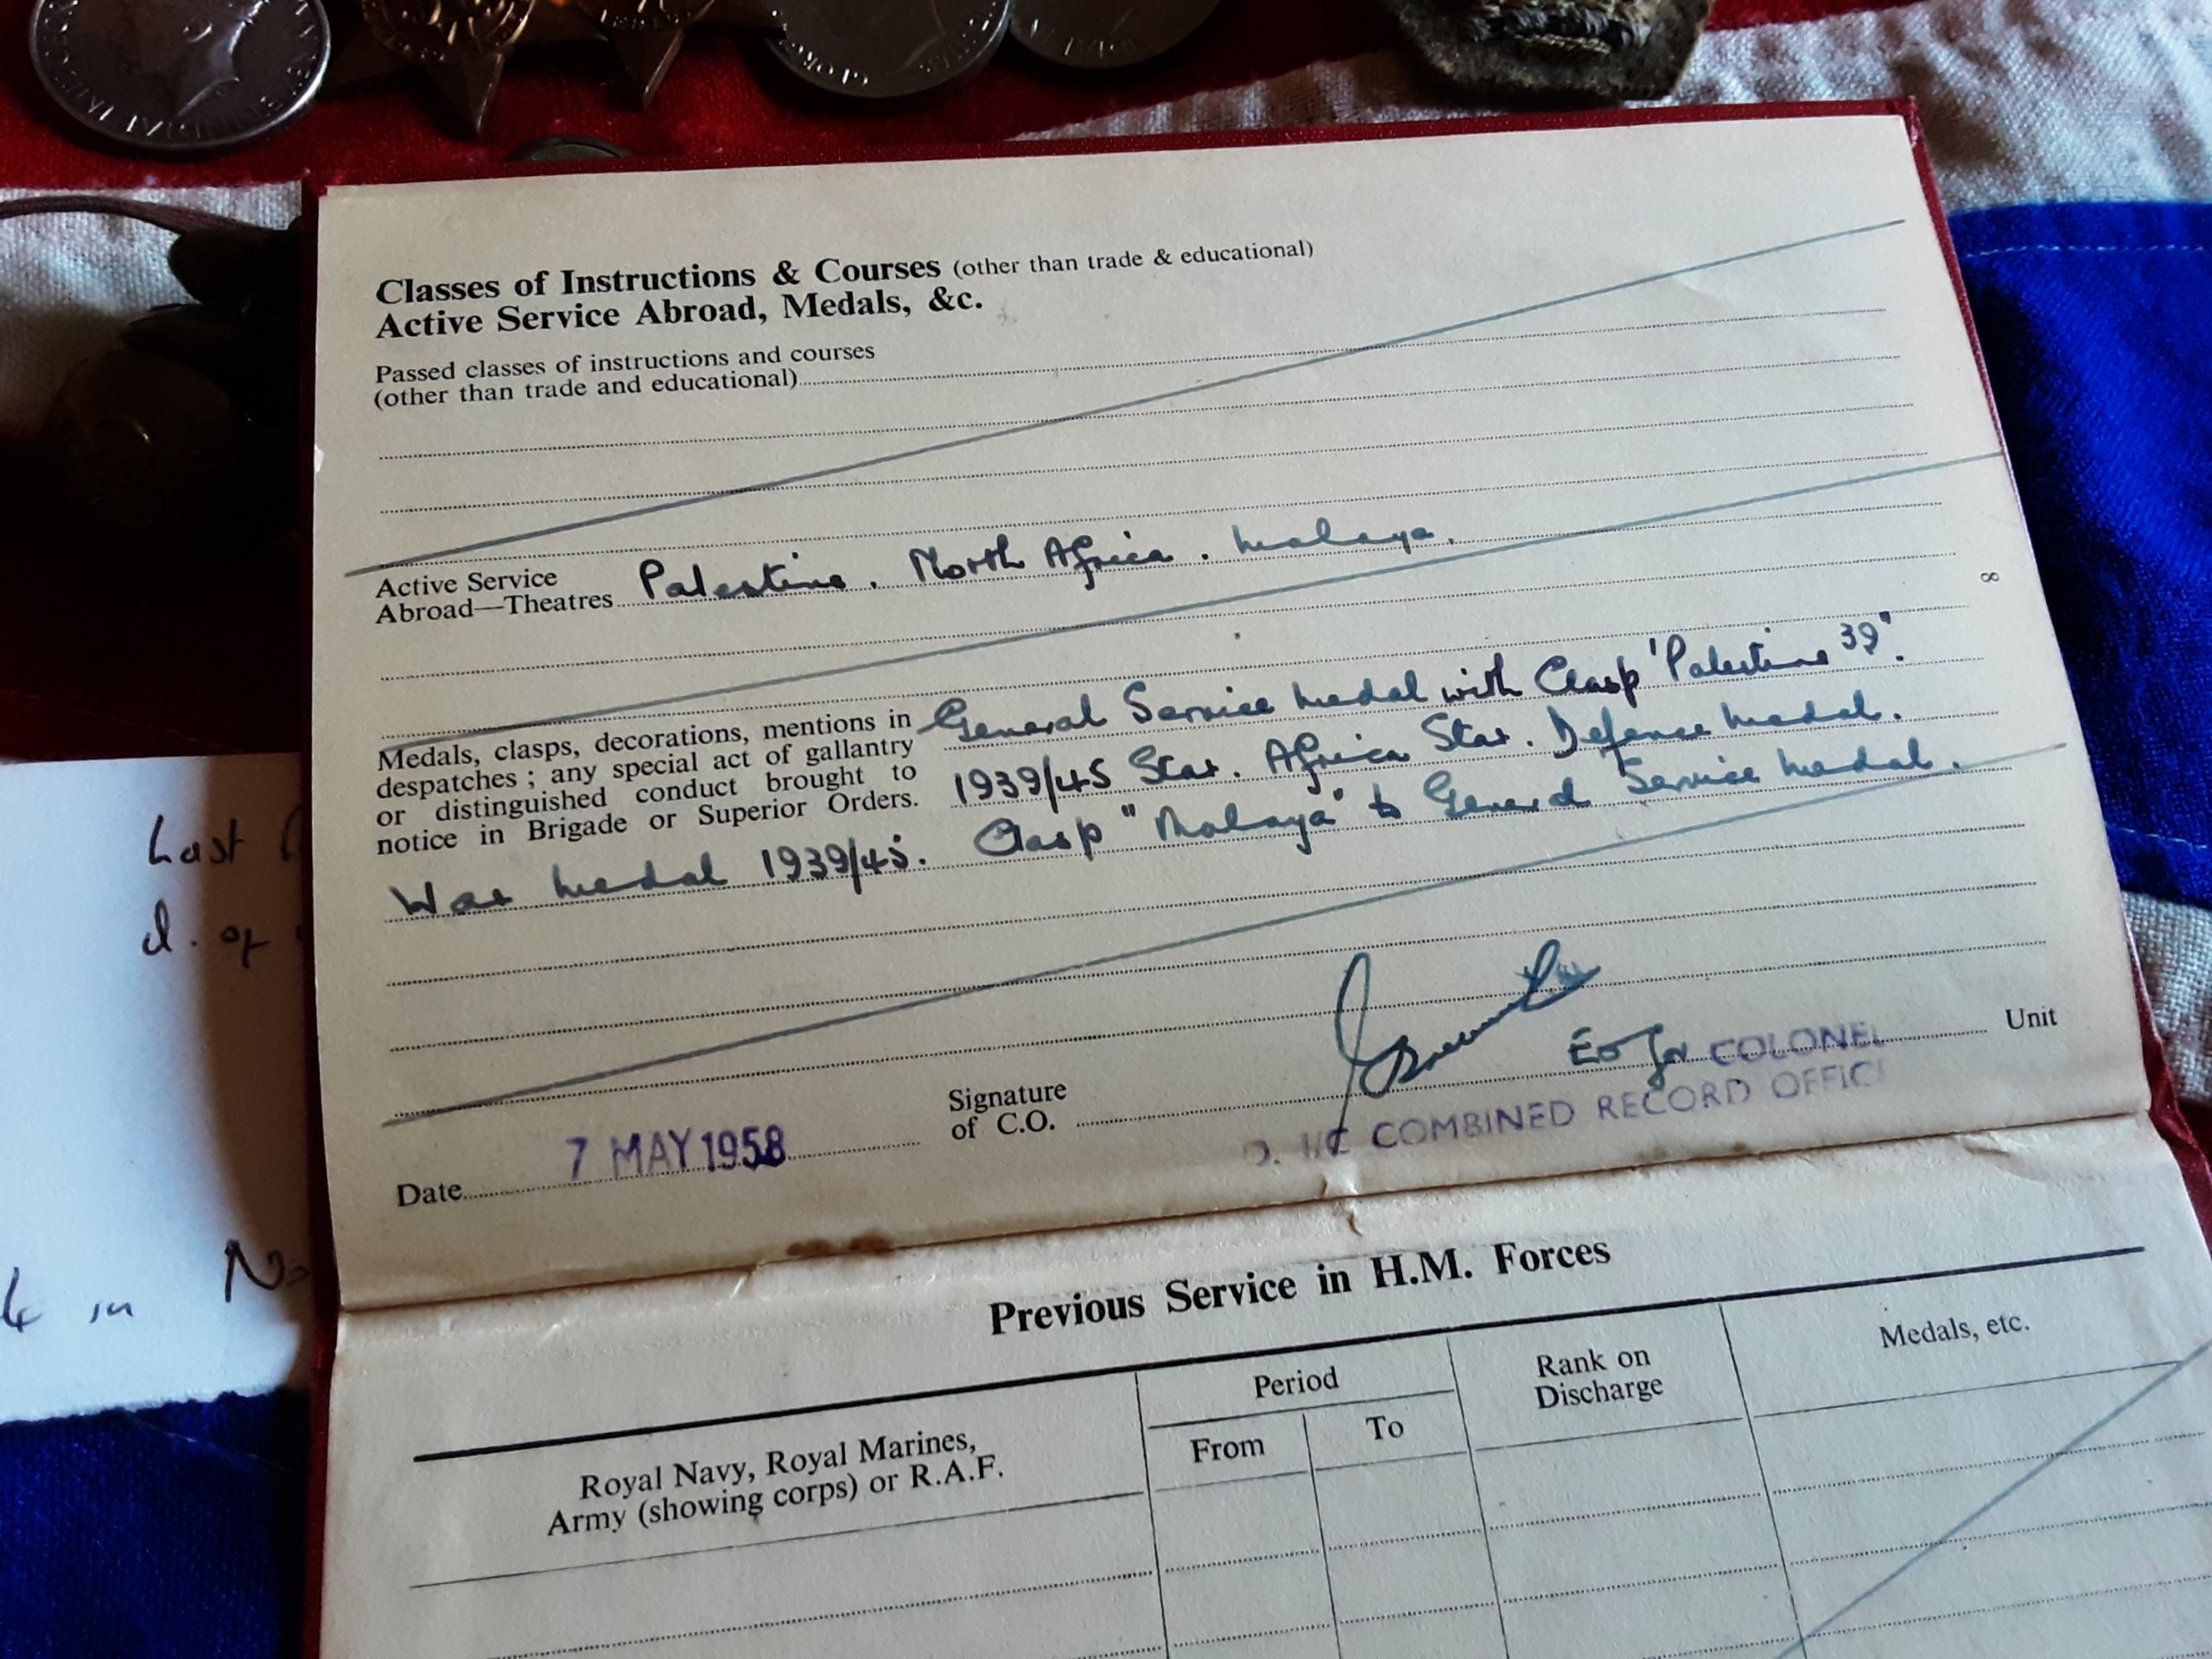 Classes of Instructions & Courses (other than trade & educational)
Active Service Abroad, Medals, &c.
Passed classes of instructions and courses
(other than trade and educational)
Active Service
Abroad—Theatres Palestine. North Africa. Malaya.
8
Medals, clasps, decorations, mentions in
despatches; any special act of gallantry
or distinguished conduct brought to
notice in Brigade or Superior Orders.
General Service Medal with Clasp 'Palestine 39".
1939/45 Star. Africa Star. Defence Medal.
War Medal 1939/45. Clasp "Malaya" to General Service Medal.
Unit
COLONEL
Signature
of C.O.
I/C COMBINED RECORD OFFIC
Date 7 MAY 1958
Previous Service in H.M. Forces
Royal Navy, Royal Marines,
Army (showing corps) or R.A.F.
Period
From
To
Rank on
Discharge
Medals, etc.
Last
d. of
in